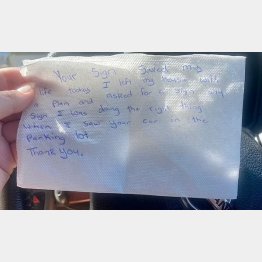 Your sign saved my
life today. I left my house with
a plan and asked for a sign any
sign I was doing the right thing
when I saw your car in the
parking lot.
Thank you.